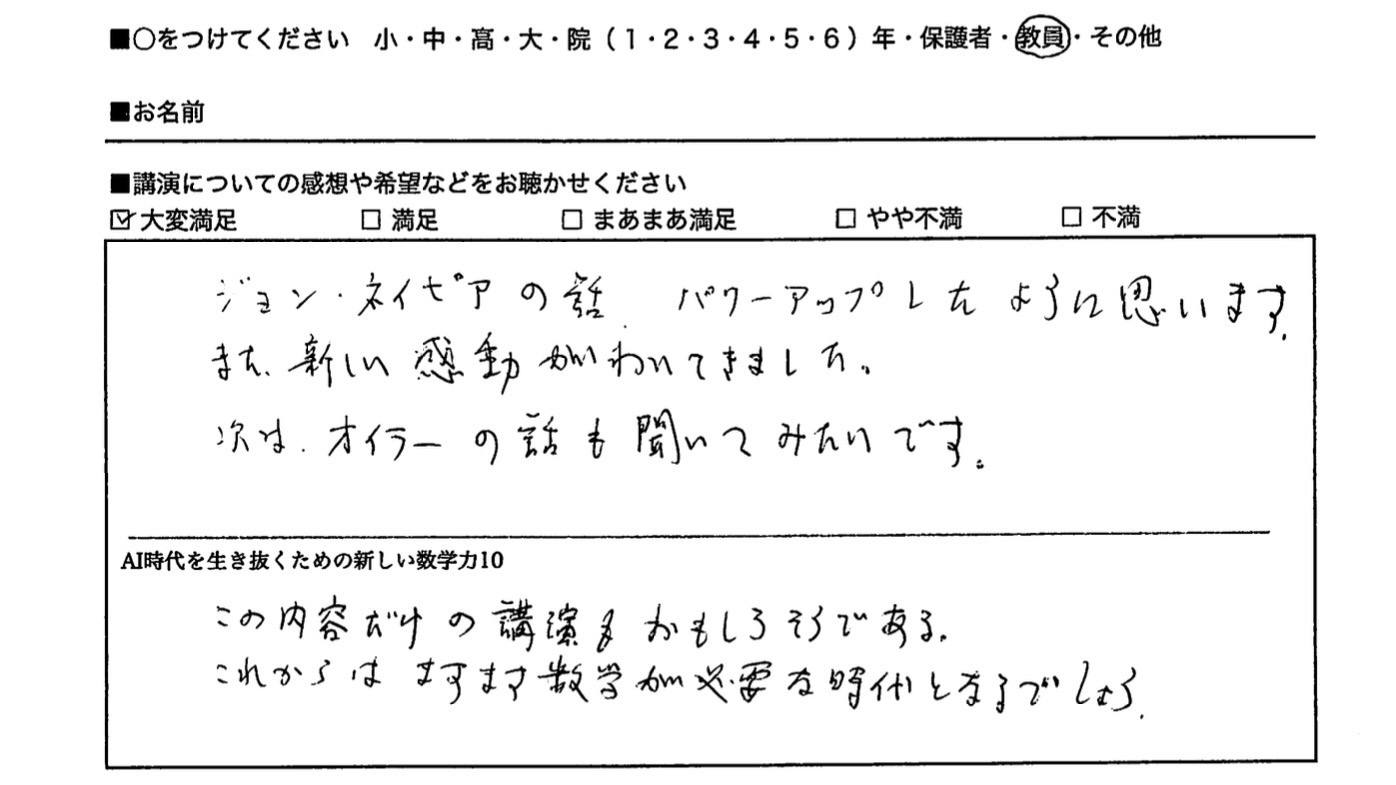 ■○をつけてください 小・中・高・大・院（1・2・3・4・5・6）年・保護者・教員・その他
■お名前
■講演についての感想や希望などをお聴かせください
☑大変満足 □ 満足 □ まあまあ満足 □ やや不満 □ 不満
ジョン・ネイピアの話 パワーアップしたように思います.
また、新しい感動がわいてきました。
次は、オイラーの話も聞いてみたいです。
AI時代を生き抜くための新しい数学力10
この内容だけの講演もおもしろそうである.
これからはますます数学が必要な時代となるでしょう.